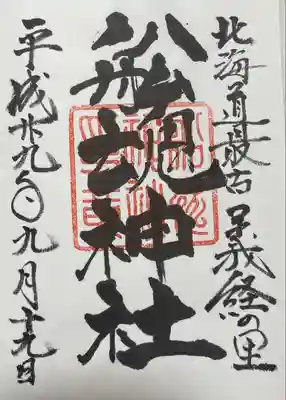 北海道最古 義經の里
船魂神社
平成廿九年九月十九日